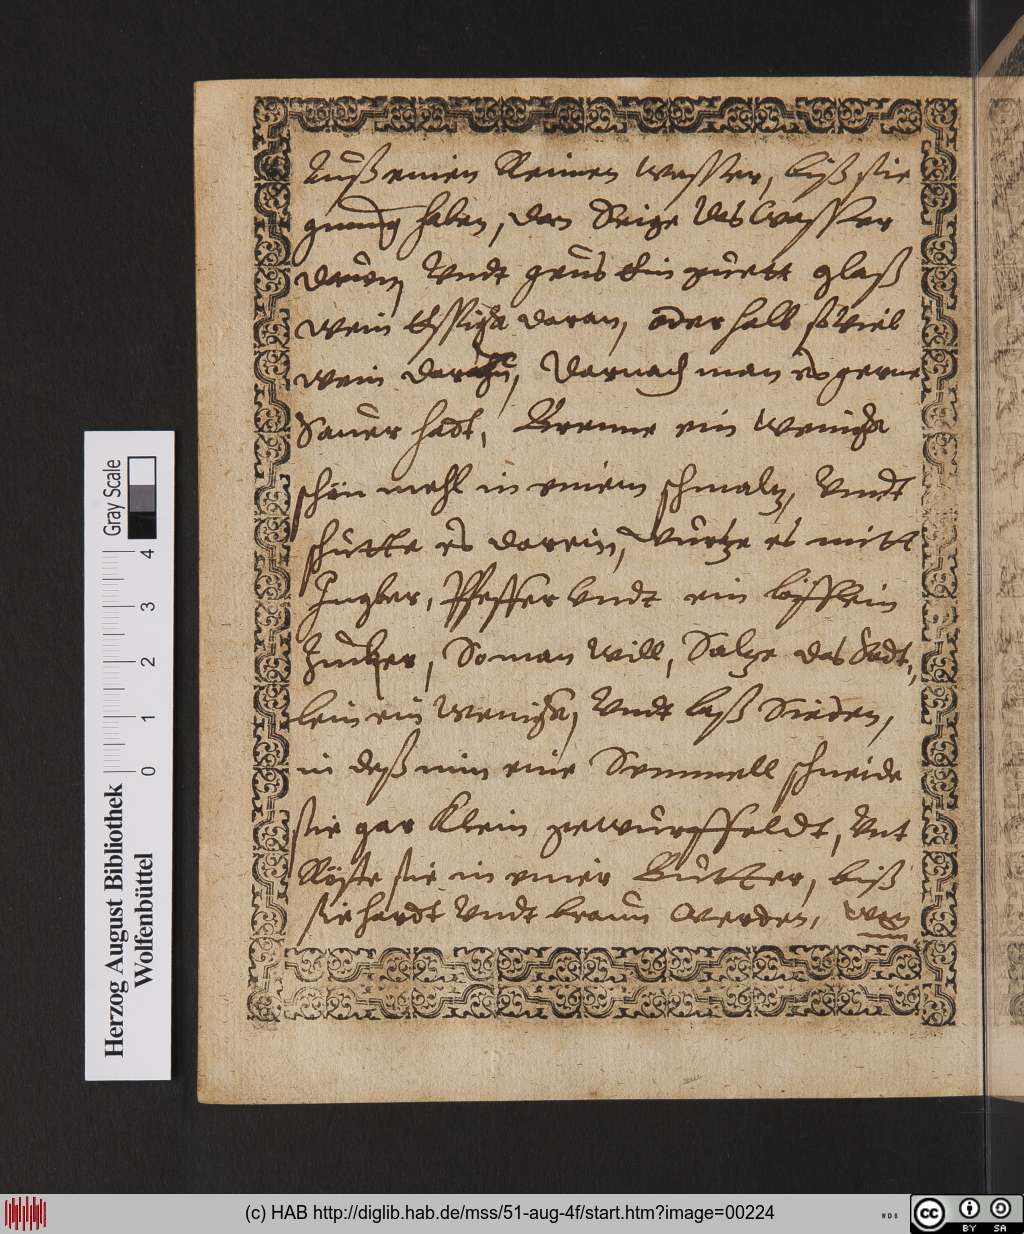 Auß einen Reinen Wasser, biß sie
genung haben, dan Seige das Wasser
davon, Undt geus Ein guett glaß
wein Essigk daran, oder halb so viel
wein darzu, Darnach man es gerne
Sauer hadt, Brenne ein Wenigk
schön mehl in einem schmaltz, Undt
schütte es darein, würtze es mitt
Ingber, Pfeffer Undt ein bisslein
Zucker, So man Will, Saltze das Sodt,
lein ein Wenigk, Undt laß Sieden,
in deß nim eine Semmell schneide
sie gar Klein gewürffeldt, Unt
Röste sie in einer Butter, biß
sie hardt Undt braun Werden,
Gray Scale
4
3
2
1
0
Herzog August Bibliothek
Wolfenbüttel
(c) HAB http://diglib.hab.de/mss/51-aug-4f/start.htm?image=00224
WDB
cc
BY SA